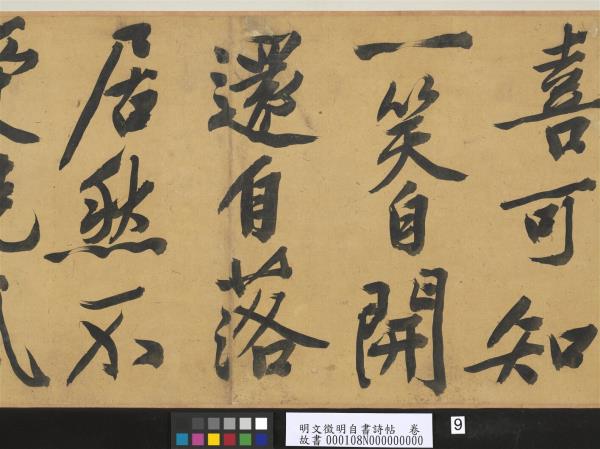 喜可知
一笑自開
還自落
居然不
明文徵明自書詩帖 卷
故書000108N000000000
9